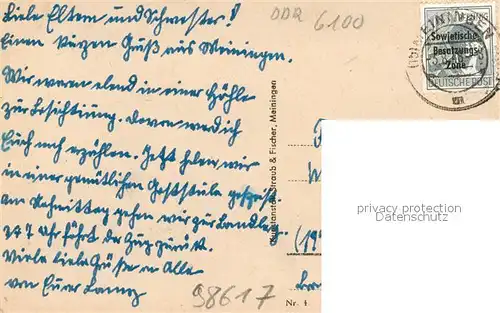 Liebe Eltern und Schwester!
Einen kurzen Gruß aus Meiningen.
Wir waren eben in einer Höhle
zur Besichtigung. Davon werd ich
Euch noch erzählen. Jetzt haben wir
in einer gemütlichen Gaststube
Am Nachmittag gehen wir zur
7 Uhr fährt der Zug zurück.
Viele liebe Grüße an Alle
von Eurer
DDR 6100
98617
MEININGEN
Sowjetische
Besatzungs-
Zone
DEUTSCHE POST
Straub & Fischer, Meiningen
Nr. 4
privacy protection
Datenschutz